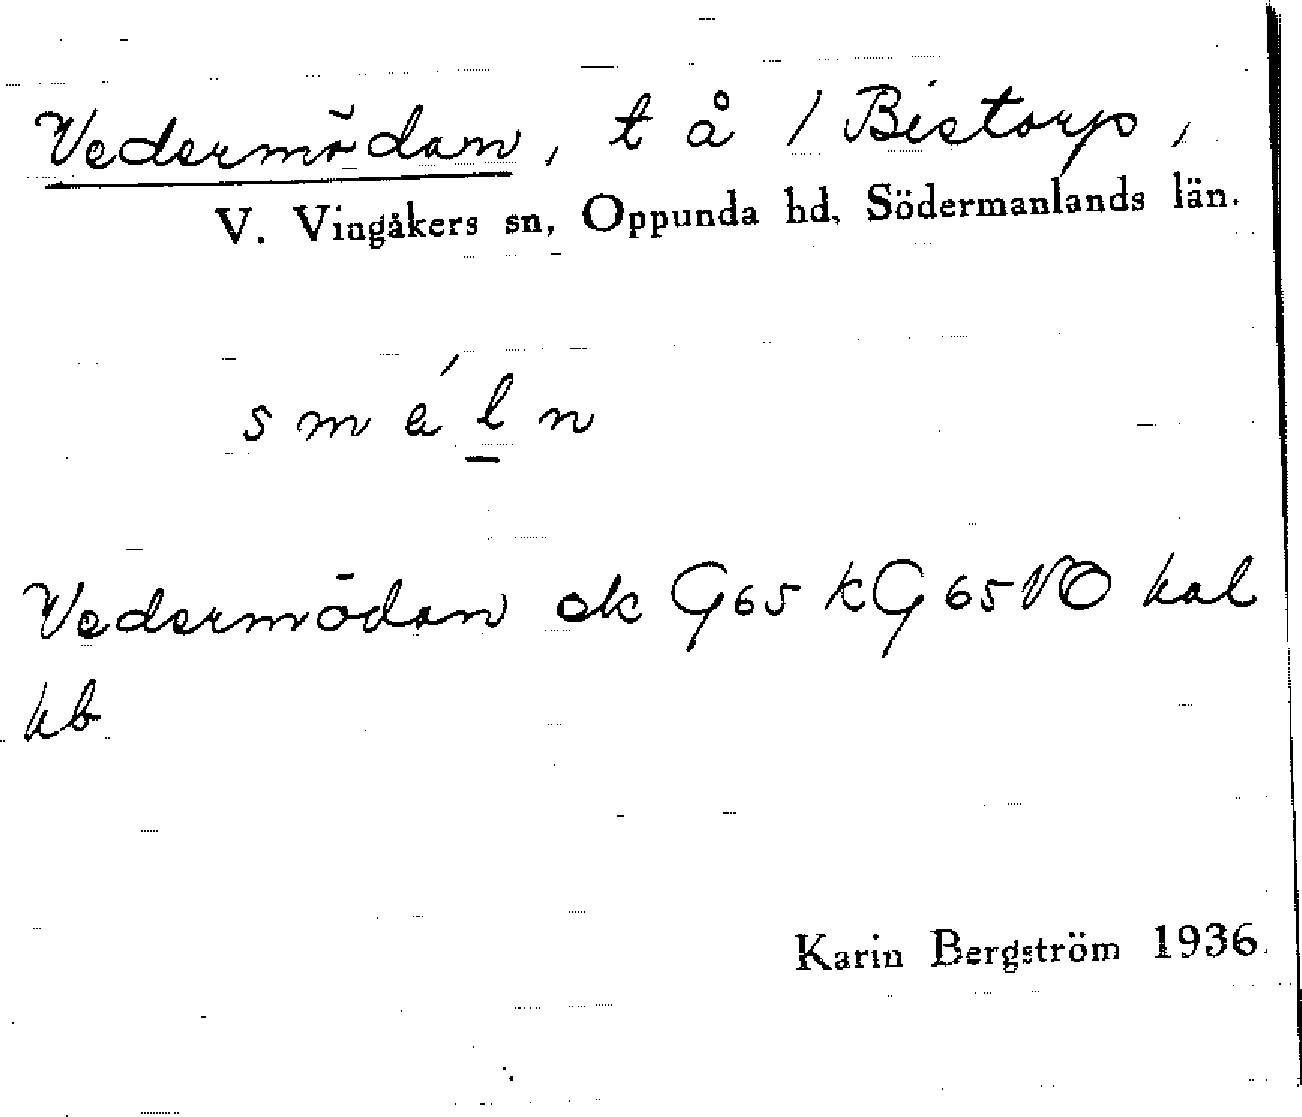 Vedermödan, t å / Bistorp,
V. Vingåkers sn, Oppunda hd, Södermanlands län.
smé̱ln
Vedermödan ek G65 kG65 VO hal
hb
Karin Bergström 1936